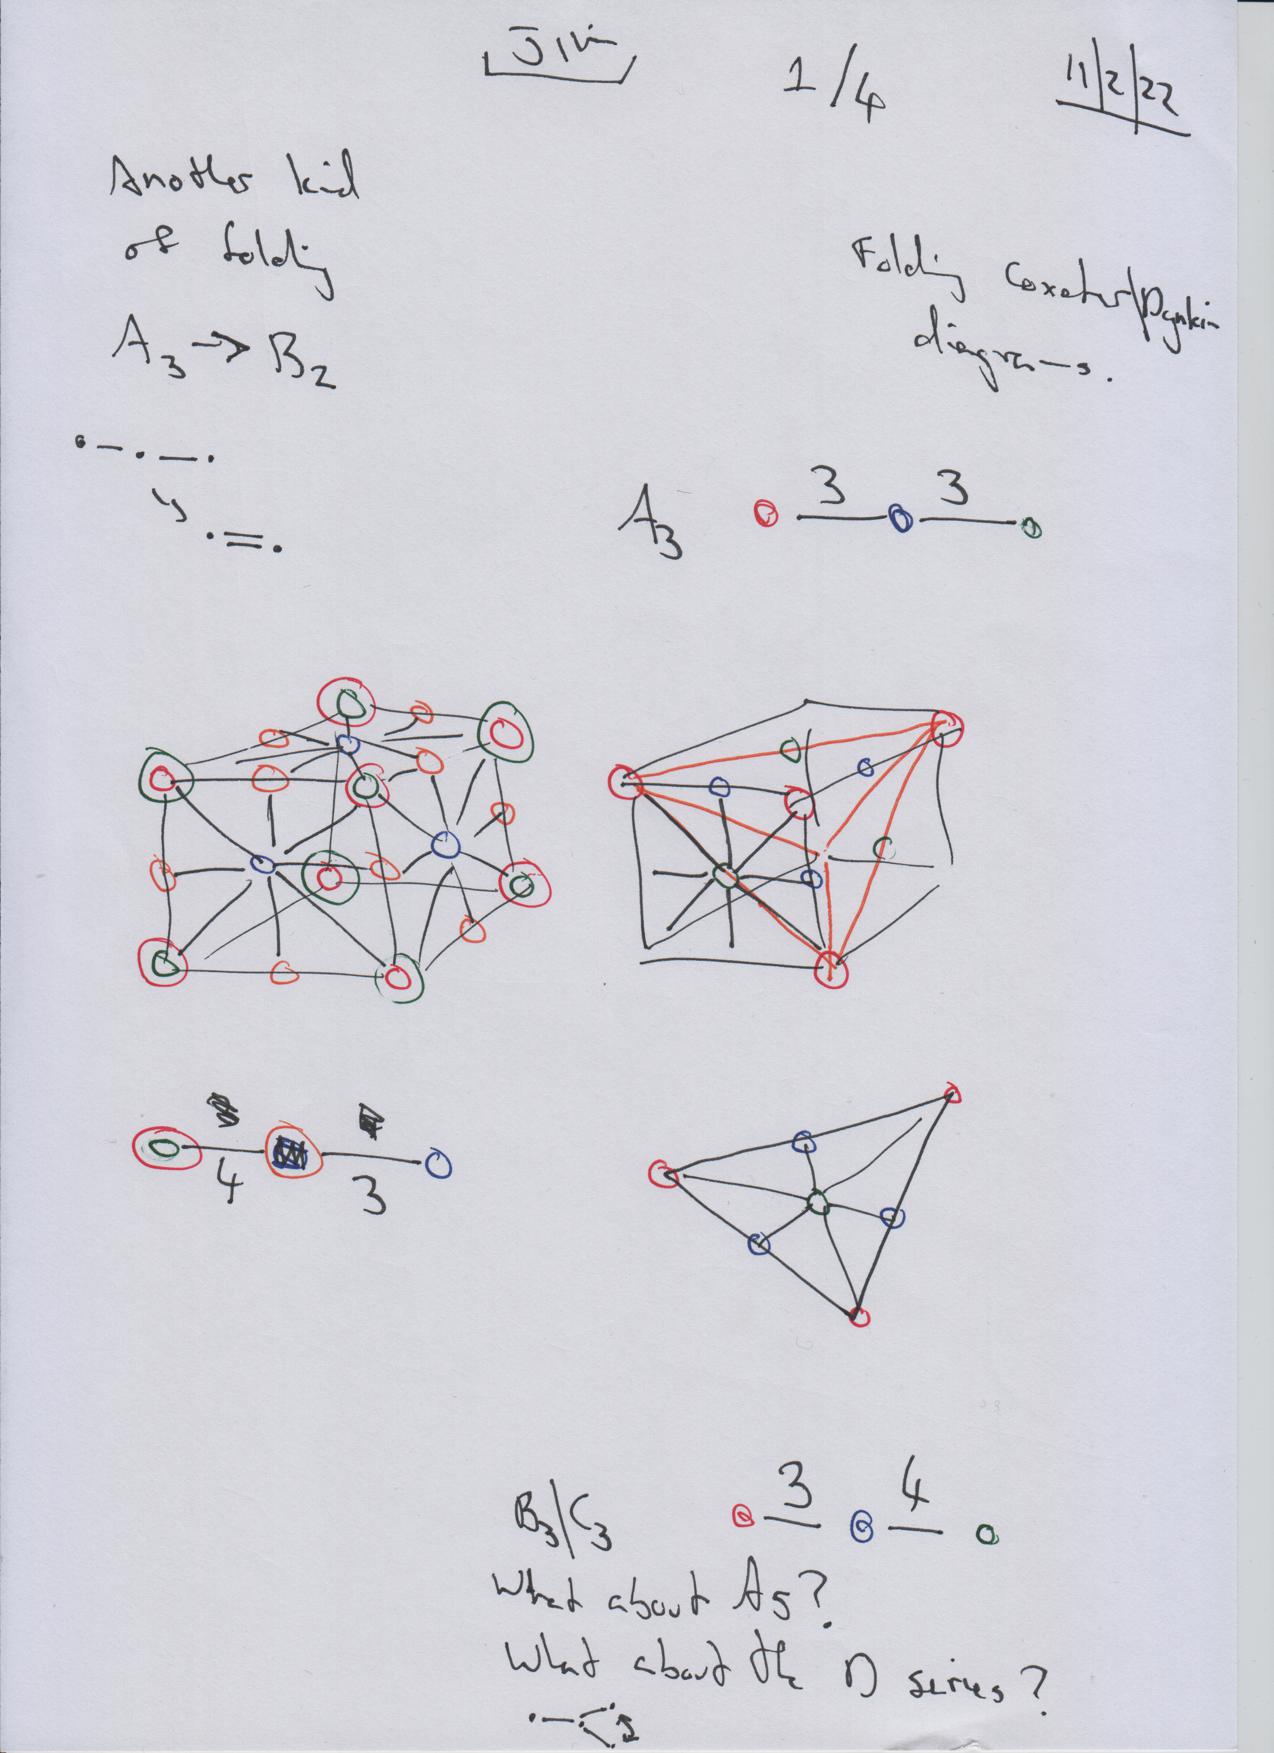 Jim
1/4
11/2/22
Another kind
of folding
A3 → B2
Folding Coxeter/Dynkin
diagrams.
A3 3 3
4 3
B3/C3 3 4
What about A5?
What about the D series?